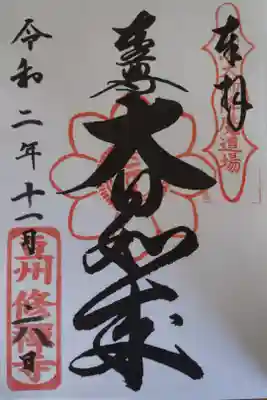 奉拝
道場
大日如来
令和二年十一月二八日
豆州 修禅寺